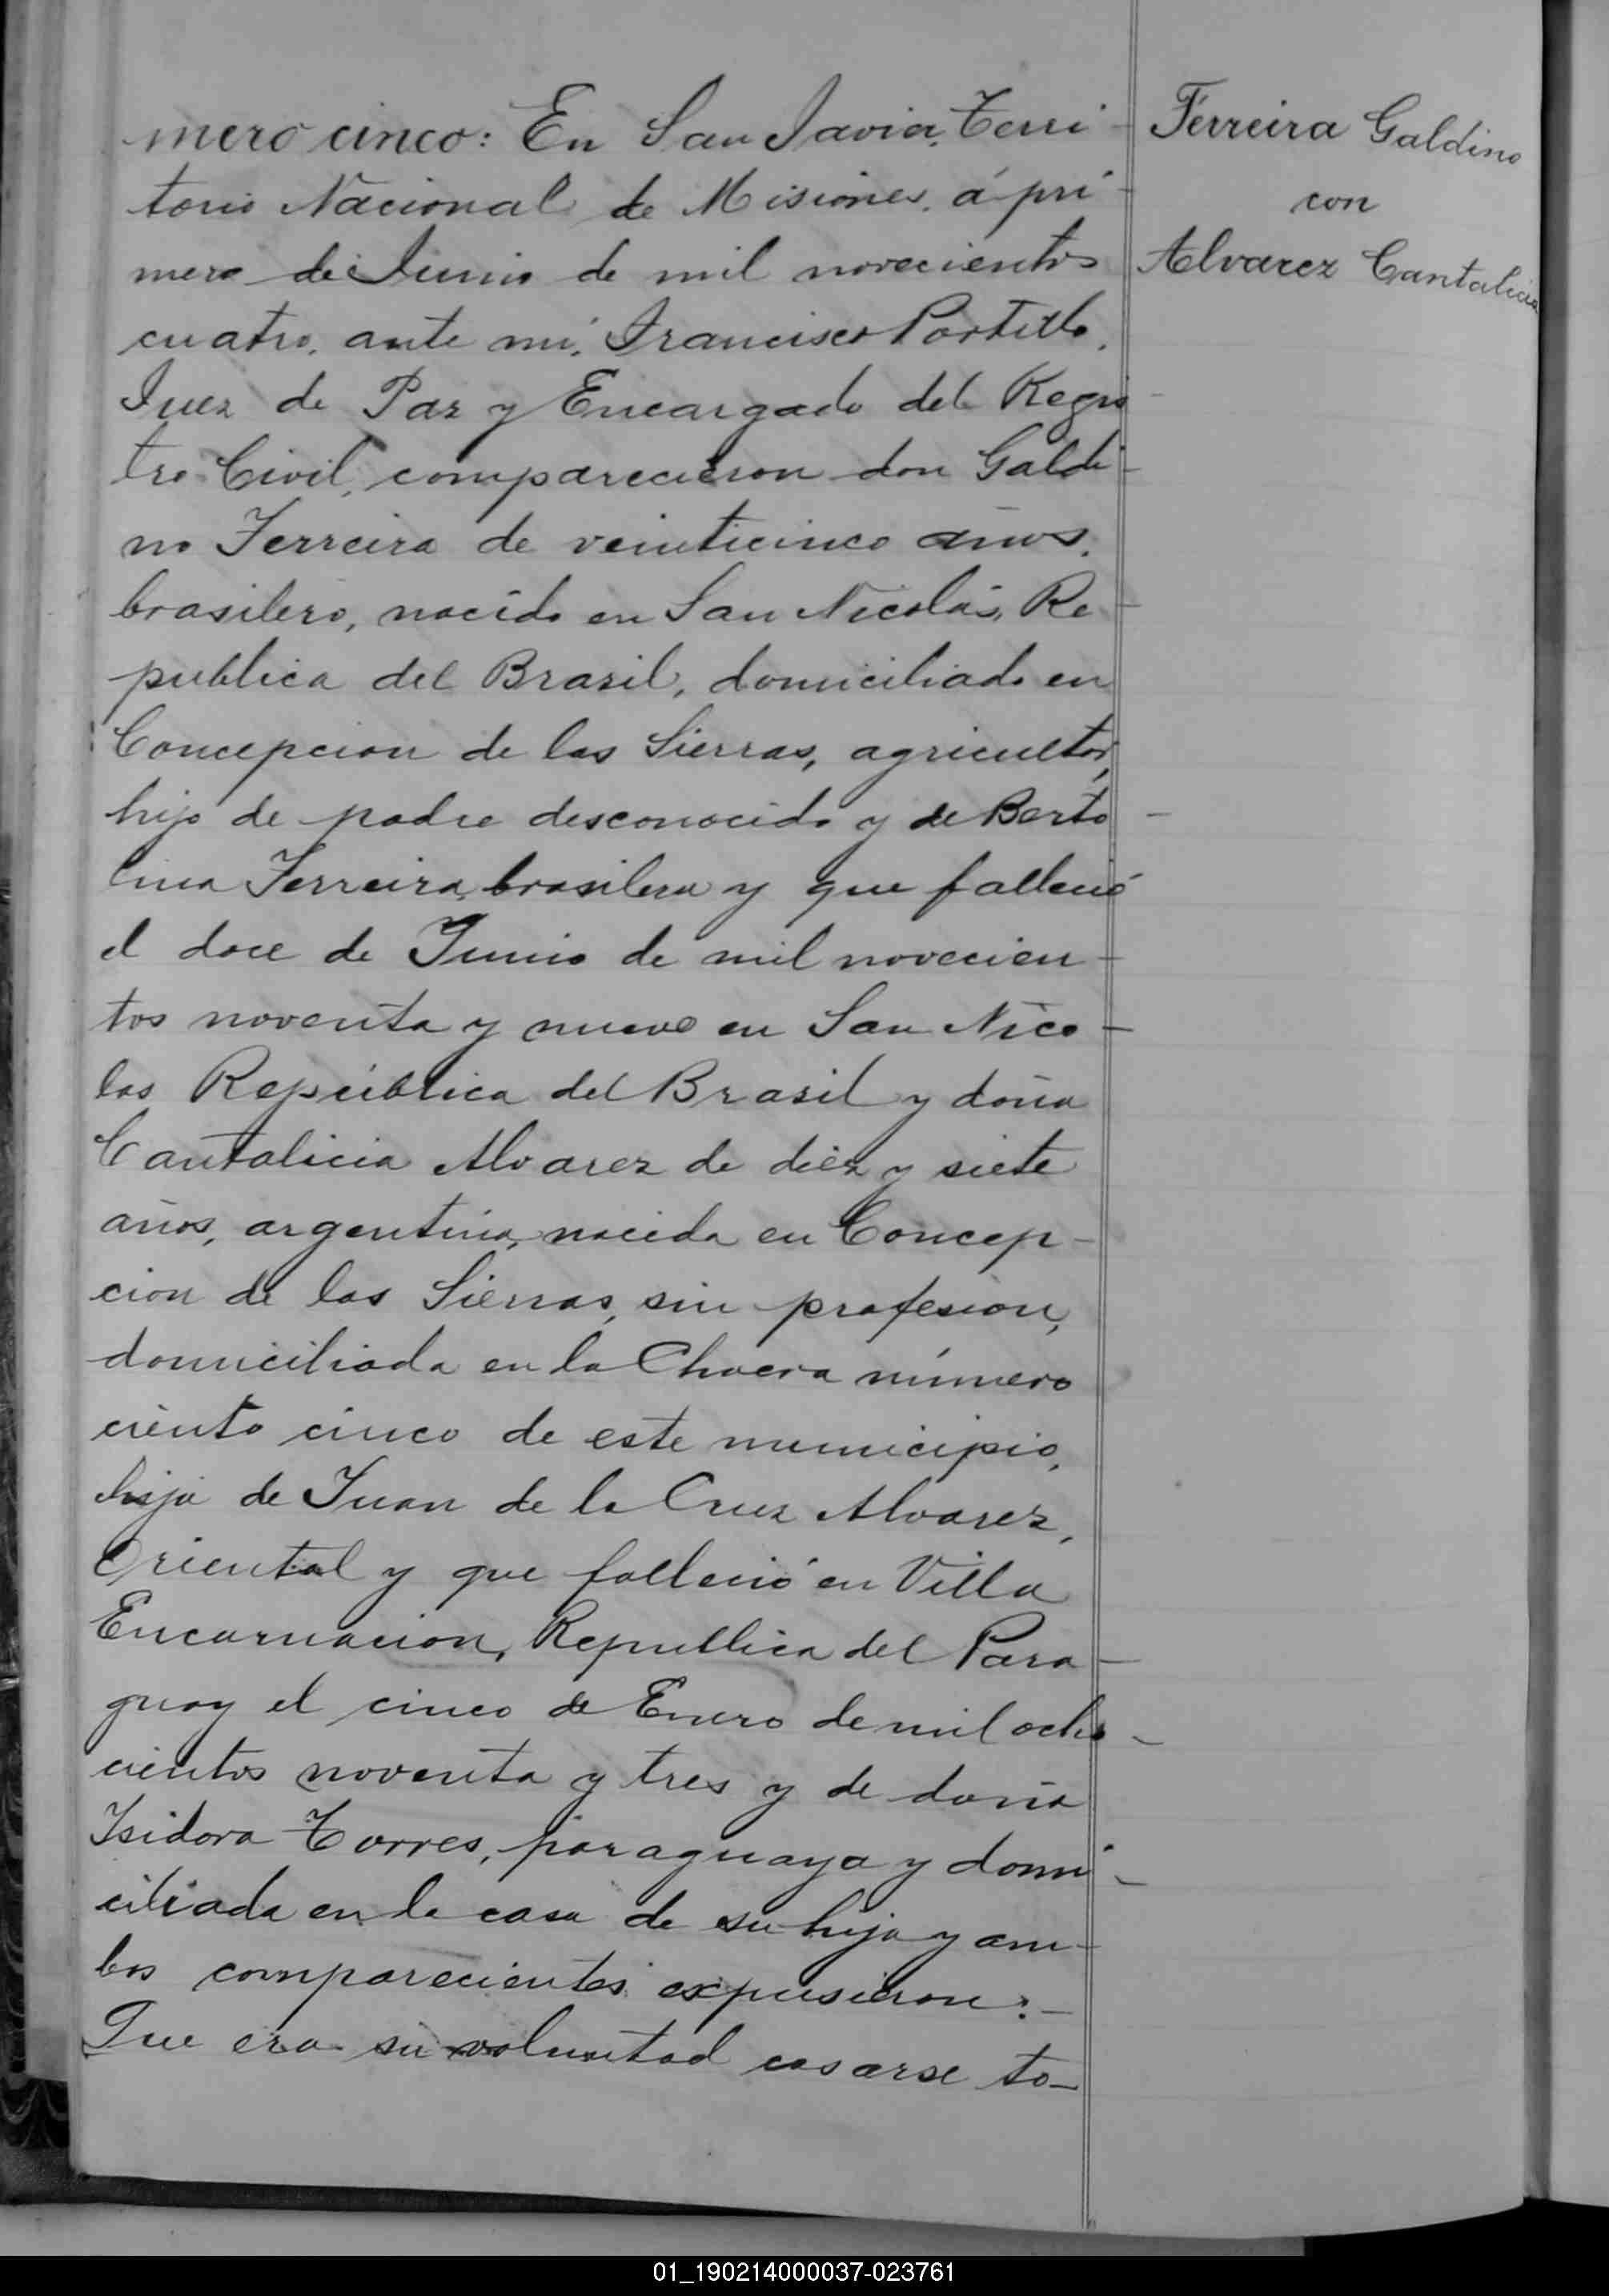 mero cinco: En San Javier, Terri-
torio Nacional de Misiones, á pri-
mero de Junio de mil novecientos
cuatro, ante mi, Francisco Portillo,
Juez de Paz y Encargado del Regis
tro Civil, comparecieron don Galdi-
no Ferreira de veinticinco años,
brasilero, nacido en San Nicolás, Re-
publica del Brasil, domiciliado en
Concepcion de las Sierras, agricultor,
hijo de padre desconocido y de Berto-
lina Ferreira, brasilera y que falleció
el doce de Junio de mil novecien-
tos noventa y nueve en San Nico-
las República del Brasil y doña
Cantalicia Alvarez de diez y siete
años, argentina, nacida en Concep-
cion de las Sierras, sin profesion,
domiciliada en la Chacra número
ciento cinco de este municipio,
hija de Juan de la Cruz Alvarez,
Oriental y que falleció en Villa
Encarnacion, Republica del Para-
guay el cinco de Enero de mil ocho-
cientos noventa y tres y de doña
Isidora Torres, paraguaya y domi-
ciliada en la casa de su hija y am-
bos comparecientes expusieron:-
Que era su voluntad casarse to-
Ferreira Galdino
con
Alvarez Cantalicia
01_190214000037-023761